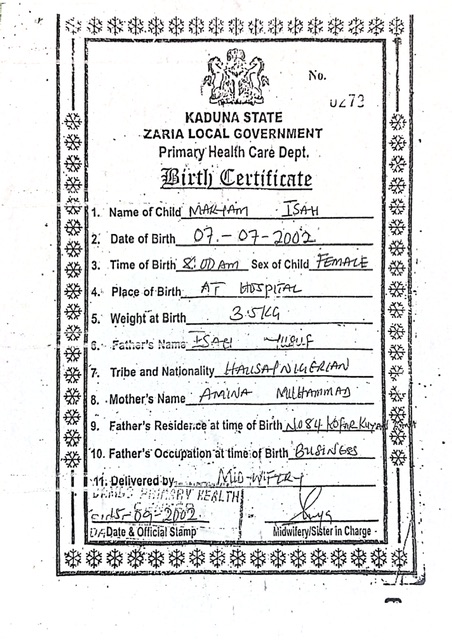 No.
0273
KADUNA STATE
ZARIA LOCAL GOVERNMENT
Primary Health Care Dept.
Birth Certificate
1. Name of Child MARYAM ISAH
2. Date of Birth 07-07-2002
3. Time of Birth 8:00AM Sex of Child FEMALE
4. Place of Birth AT HOSPITAL
5. Weight at Birth 3.5KG
6. Father's Name ISAH YUSUF
7. Tribe and Nationality HAUSA/NIGERIAN
8. Mother's Name AMINA MUHAMMAD
9. Father's Residence at time of Birth NO84 KOFAR KUYAN
10. Father's Occupation at time of Birth BUSINESS
11. Delivered by MID-WIFERY
PRIMARY HEALTH
15-09-2002
Date & Official Stamp Midwifery/Sister in Charge